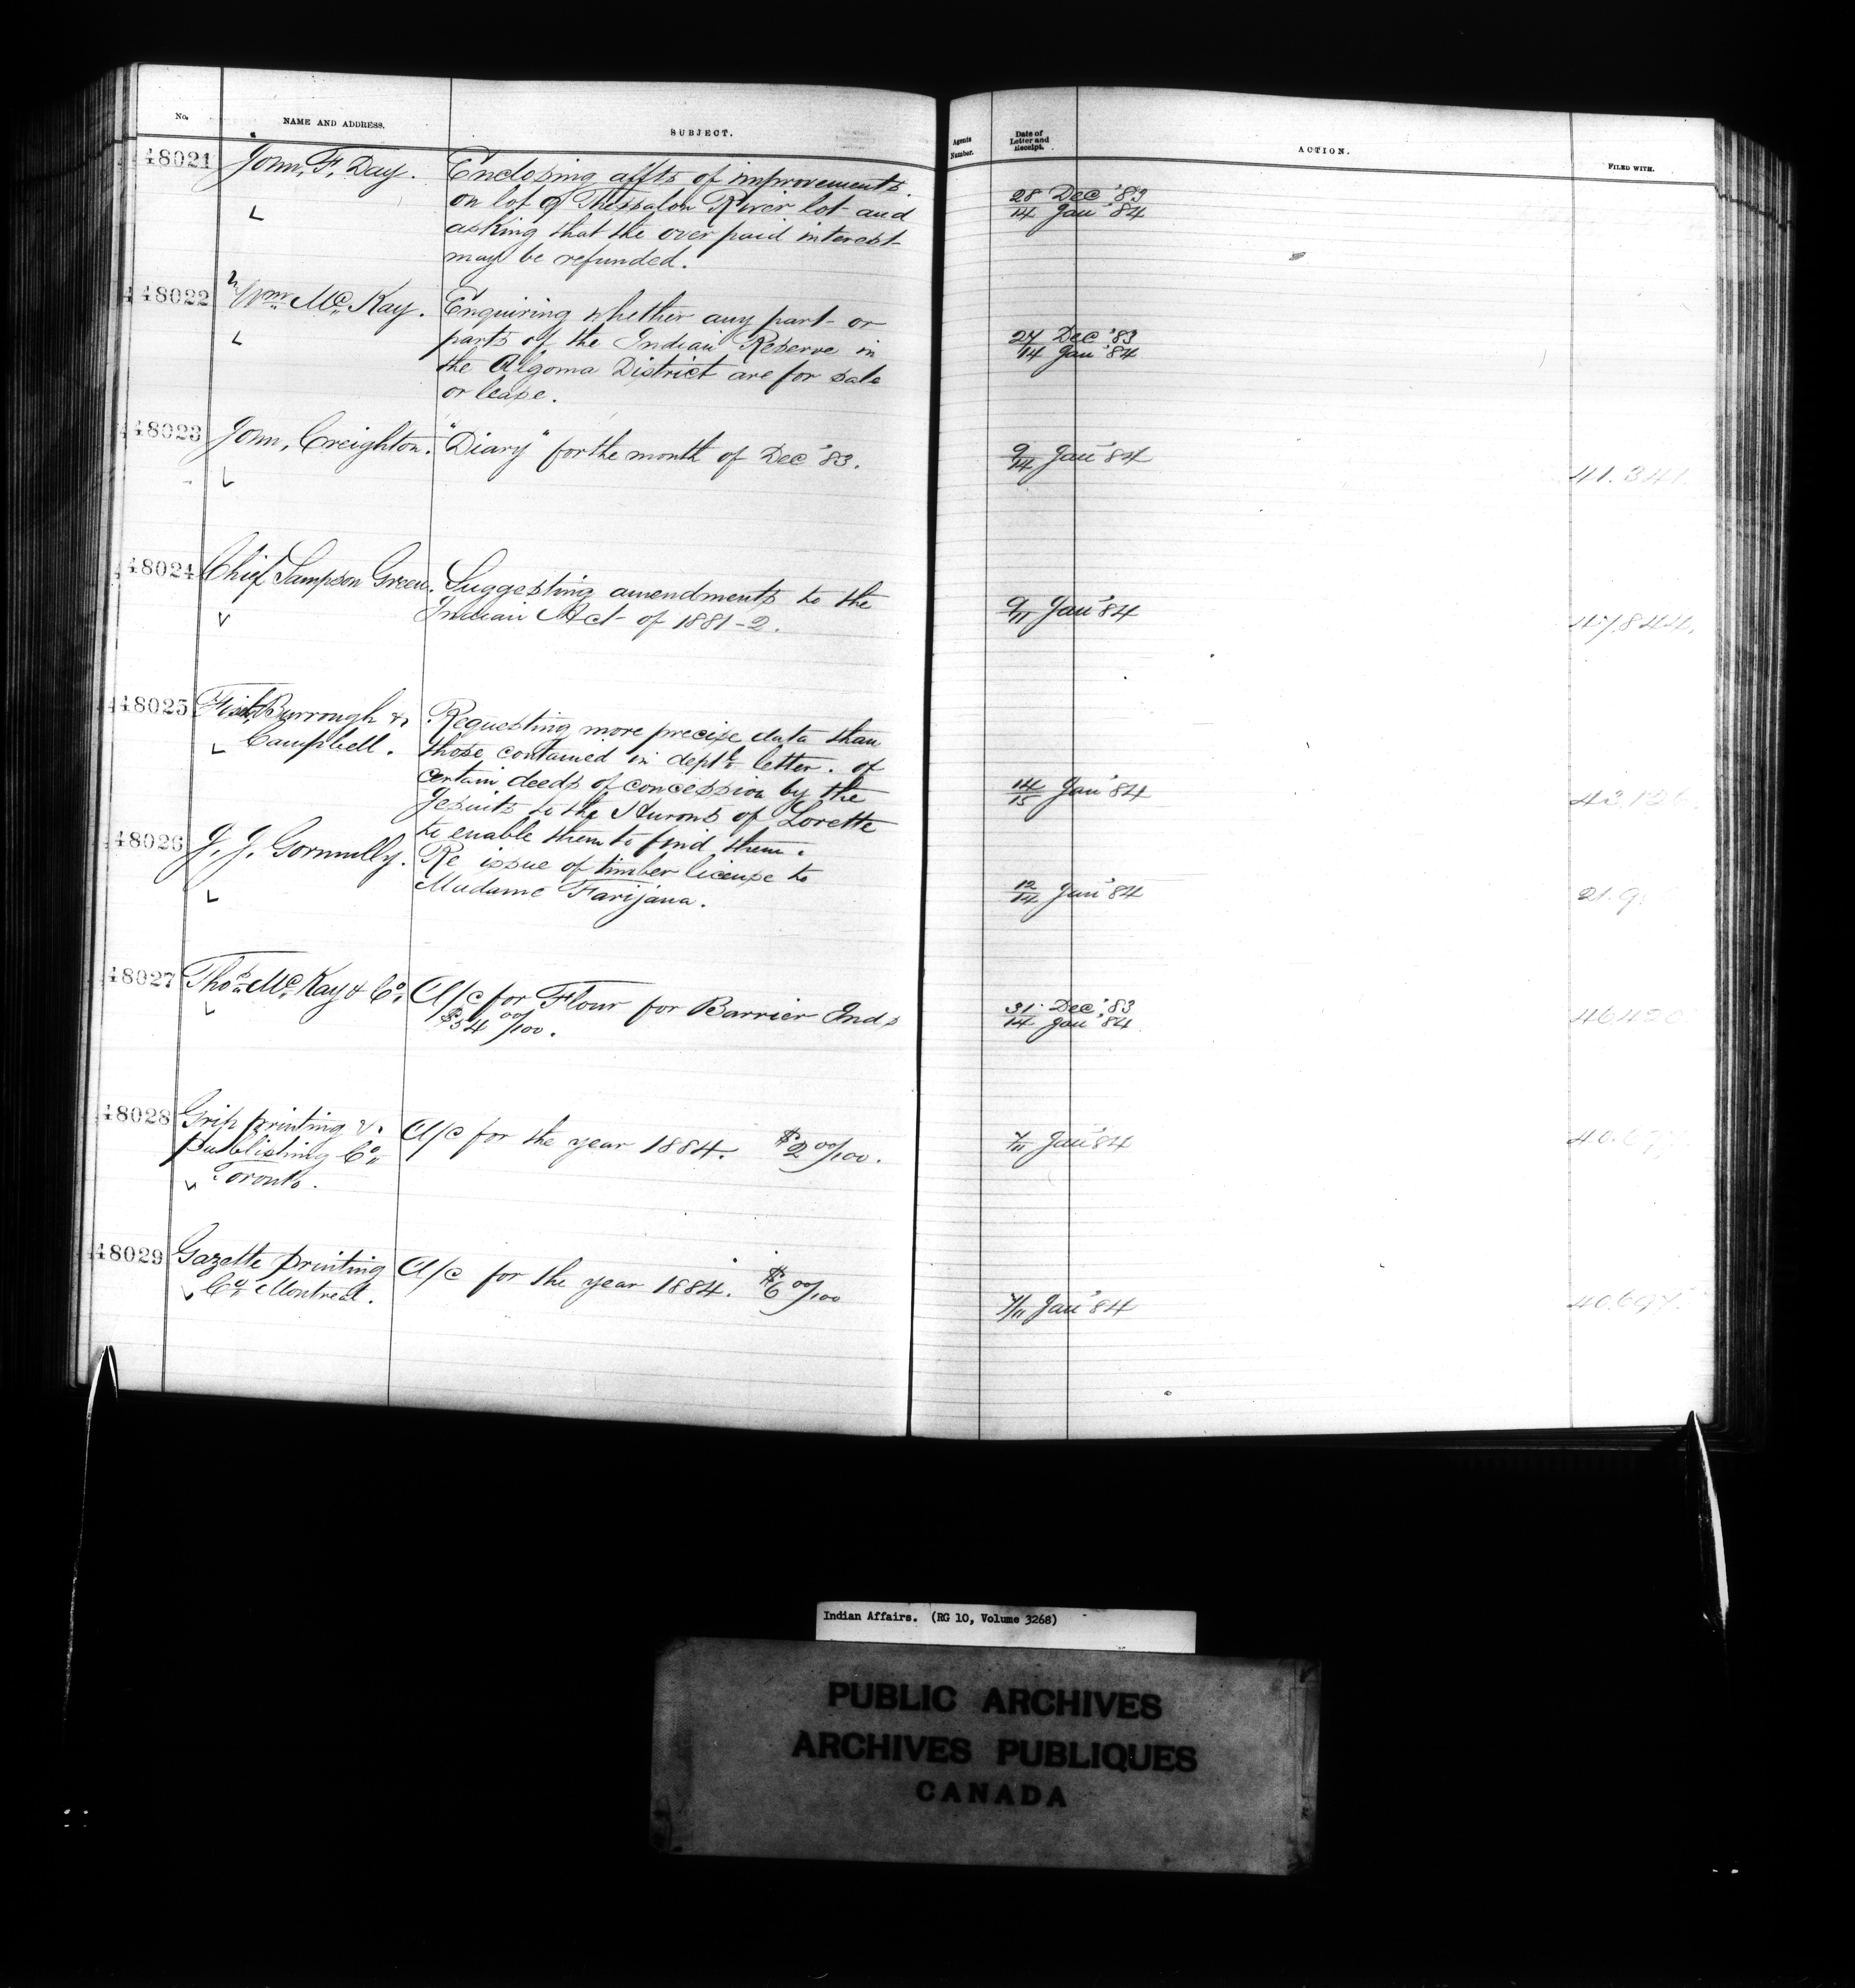 No. NAME AND ADDRESS. SUBJECT. Agents Number. Date of Letter and Receipt. ACTION. FILED WITH.
48021 John, F, Day. Enclosing affts of improvements
on lot of Thessalon River lot and
asking that the over paid interest
may be refunded.
28 Dec '83
14 Jan '84
48022 Wm Mc Kay. Enquiring whether any part or
parts of the Indian Reserve in
the Algoma District are for sale
or lease.
27 Dec '83
14 Jan '84
48023 John, Creighton. "Diary" for the month of Dec '83. 9/14 Jan '84 41.341.
48024 Chief Sampson Green. Suggesting amendments to the
Indian Act of 1881-2.
9/11 Jan '84 47,844.
48025 Burrough &
Campbell.
Requesting more precise data than
those contained in deptl letter. of
certain deeds of concession by the
Jesuits to the Hurons of Lorette
to enable them to find them.
14/15 Jan '84
48026 J, J, Gormully. Re issue of timber license to
Madame Farijana.
12/14 Jan '84 21.9
48027 Thos Mc Kay & Co, A/c for Flour for Barrier Inds
$54 00/100.
31 Dec, '83
14 Jan '84
46420
48028 Grip printing &
publishing Co
Toronto.
A/c for the year 1884. $2 00/100. 7/11 Jan '84
48029 Gazette printing
Co, Montreal.
A/c for the year 1884. $6 00/100 7/11 Jan '84 40.697.
Indian Affairs. (RG 10, Volume 3268)
PUBLIC ARCHIVES
ARCHIVES PUBLIQUES
CANADA